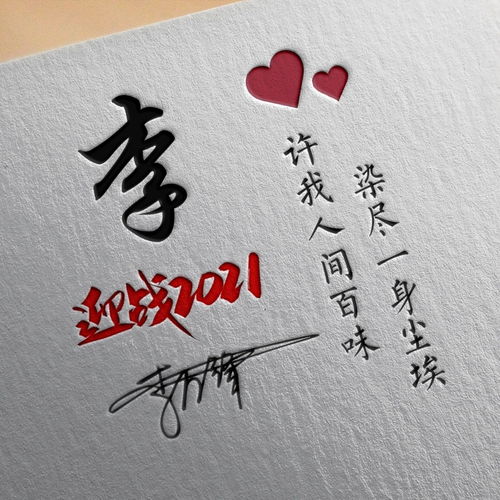 李
迎战2021
染尽一身尘埃
许我人间百味